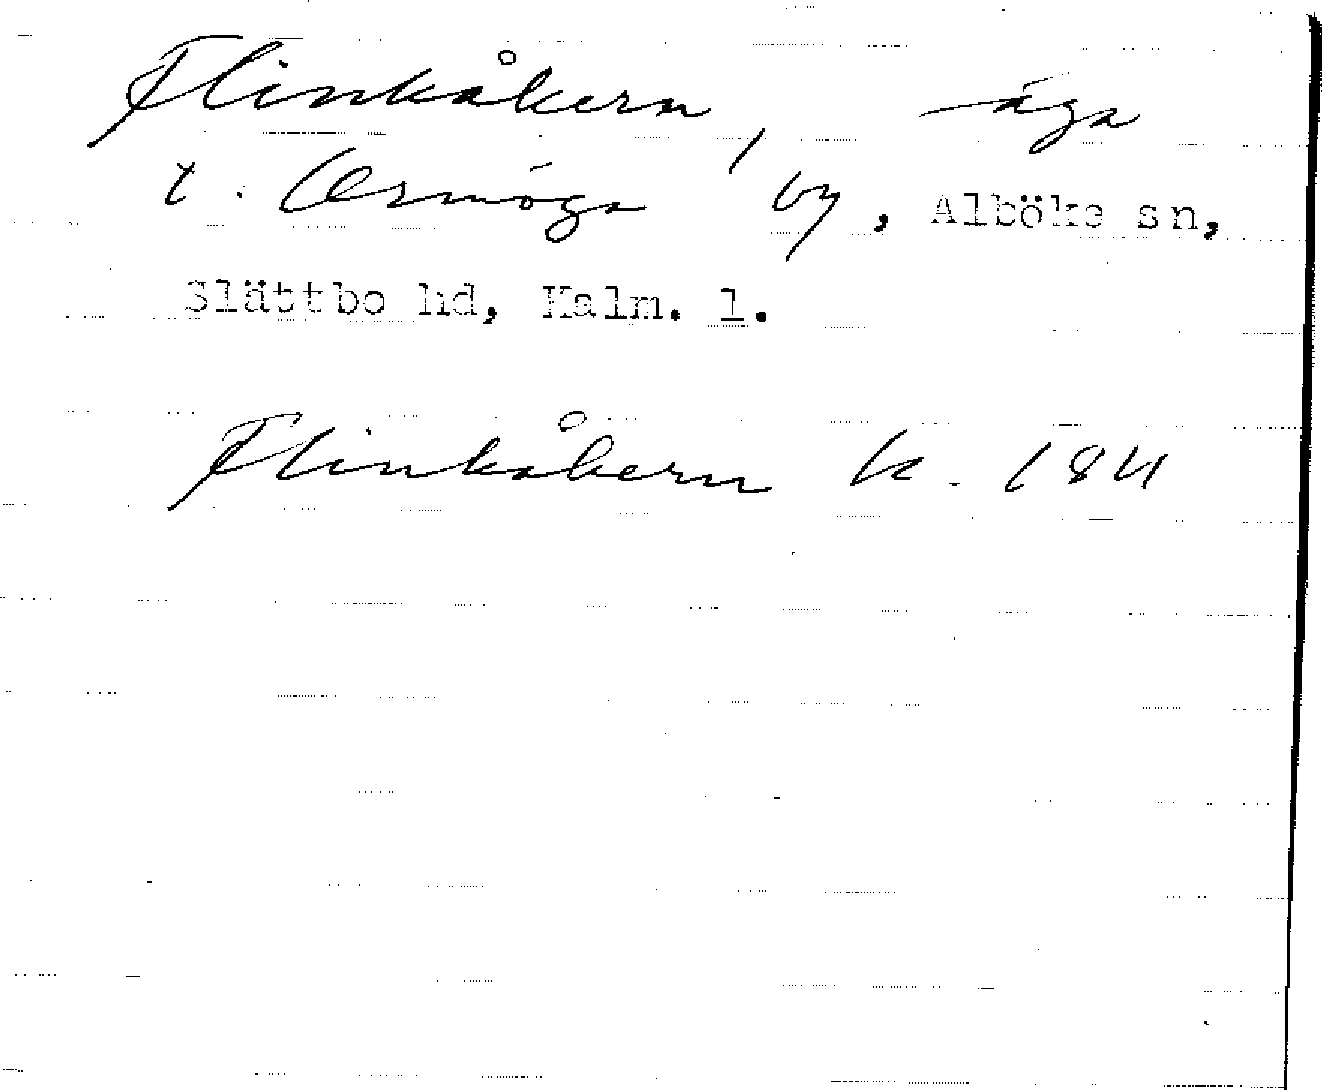 Flinkåkern, äga
t. Ormöga by, Alböke sn,
Slättbo hd, Kalm. l.
Flinkåkern k. 1841